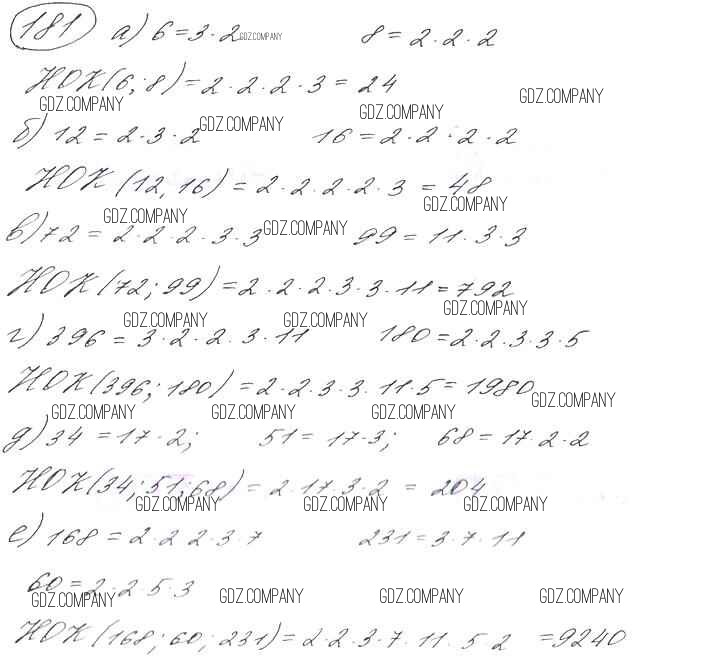 181 а) 6 = 3 · 2 GDZ.COMPANY 8 = 2 · 2 · 2
НОК(6; 8) = 2 · 2 · 2 · 3 = 24
GDZ.COMPANY GDZ.COMPANY GDZ.COMPANY
б) 12 = 2 · 3 · 2 GDZ.COMPANY 16 = 2 · 2 · 2 · 2
НОК (12, 16) = 2 · 2 · 2 · 2 · 3 = 48
GDZ.COMPANY GDZ.COMPANY
в) 72 = 2 · 2 · 2 · 3 · 3 GDZ.COMPANY 99 = 11 · 3 · 3
НОК (72; 99) = 2 · 2 · 2 · 3 · 3 · 11 = 792
GDZ.COMPANY GDZ.COMPANY GDZ.COMPANY
г) 396 = 3 · 2 · 2 · 3 · 11 180 = 2 · 2 · 3 · 3 · 5
НОК(396; 180) = 2 · 2 · 3 · 3 · 11 · 5 = 1980
GDZ.COMPANY GDZ.COMPANY GDZ.COMPANY GDZ.COMPANY
д) 34 = 17 · 2; 51 = 17 · 3; 68 = 17 · 2 · 2
НОК(34; 51; 68) = 2 · 17 · 3 · 2 = 204
GDZ.COMPANY GDZ.COMPANY GDZ.COMPANY
е) 168 = 2 · 2 2 · 3 · 7 231 = 3 · 7 · 11
60 = 2 · 2 · 5 · 3
GDZ.COMPANY GDZ.COMPANY GDZ.COMPANY GDZ.COMPANY
НОК (168; 60; 231) = 2 · 2 · 3 · 7 · 11 · 5 2 = 9240